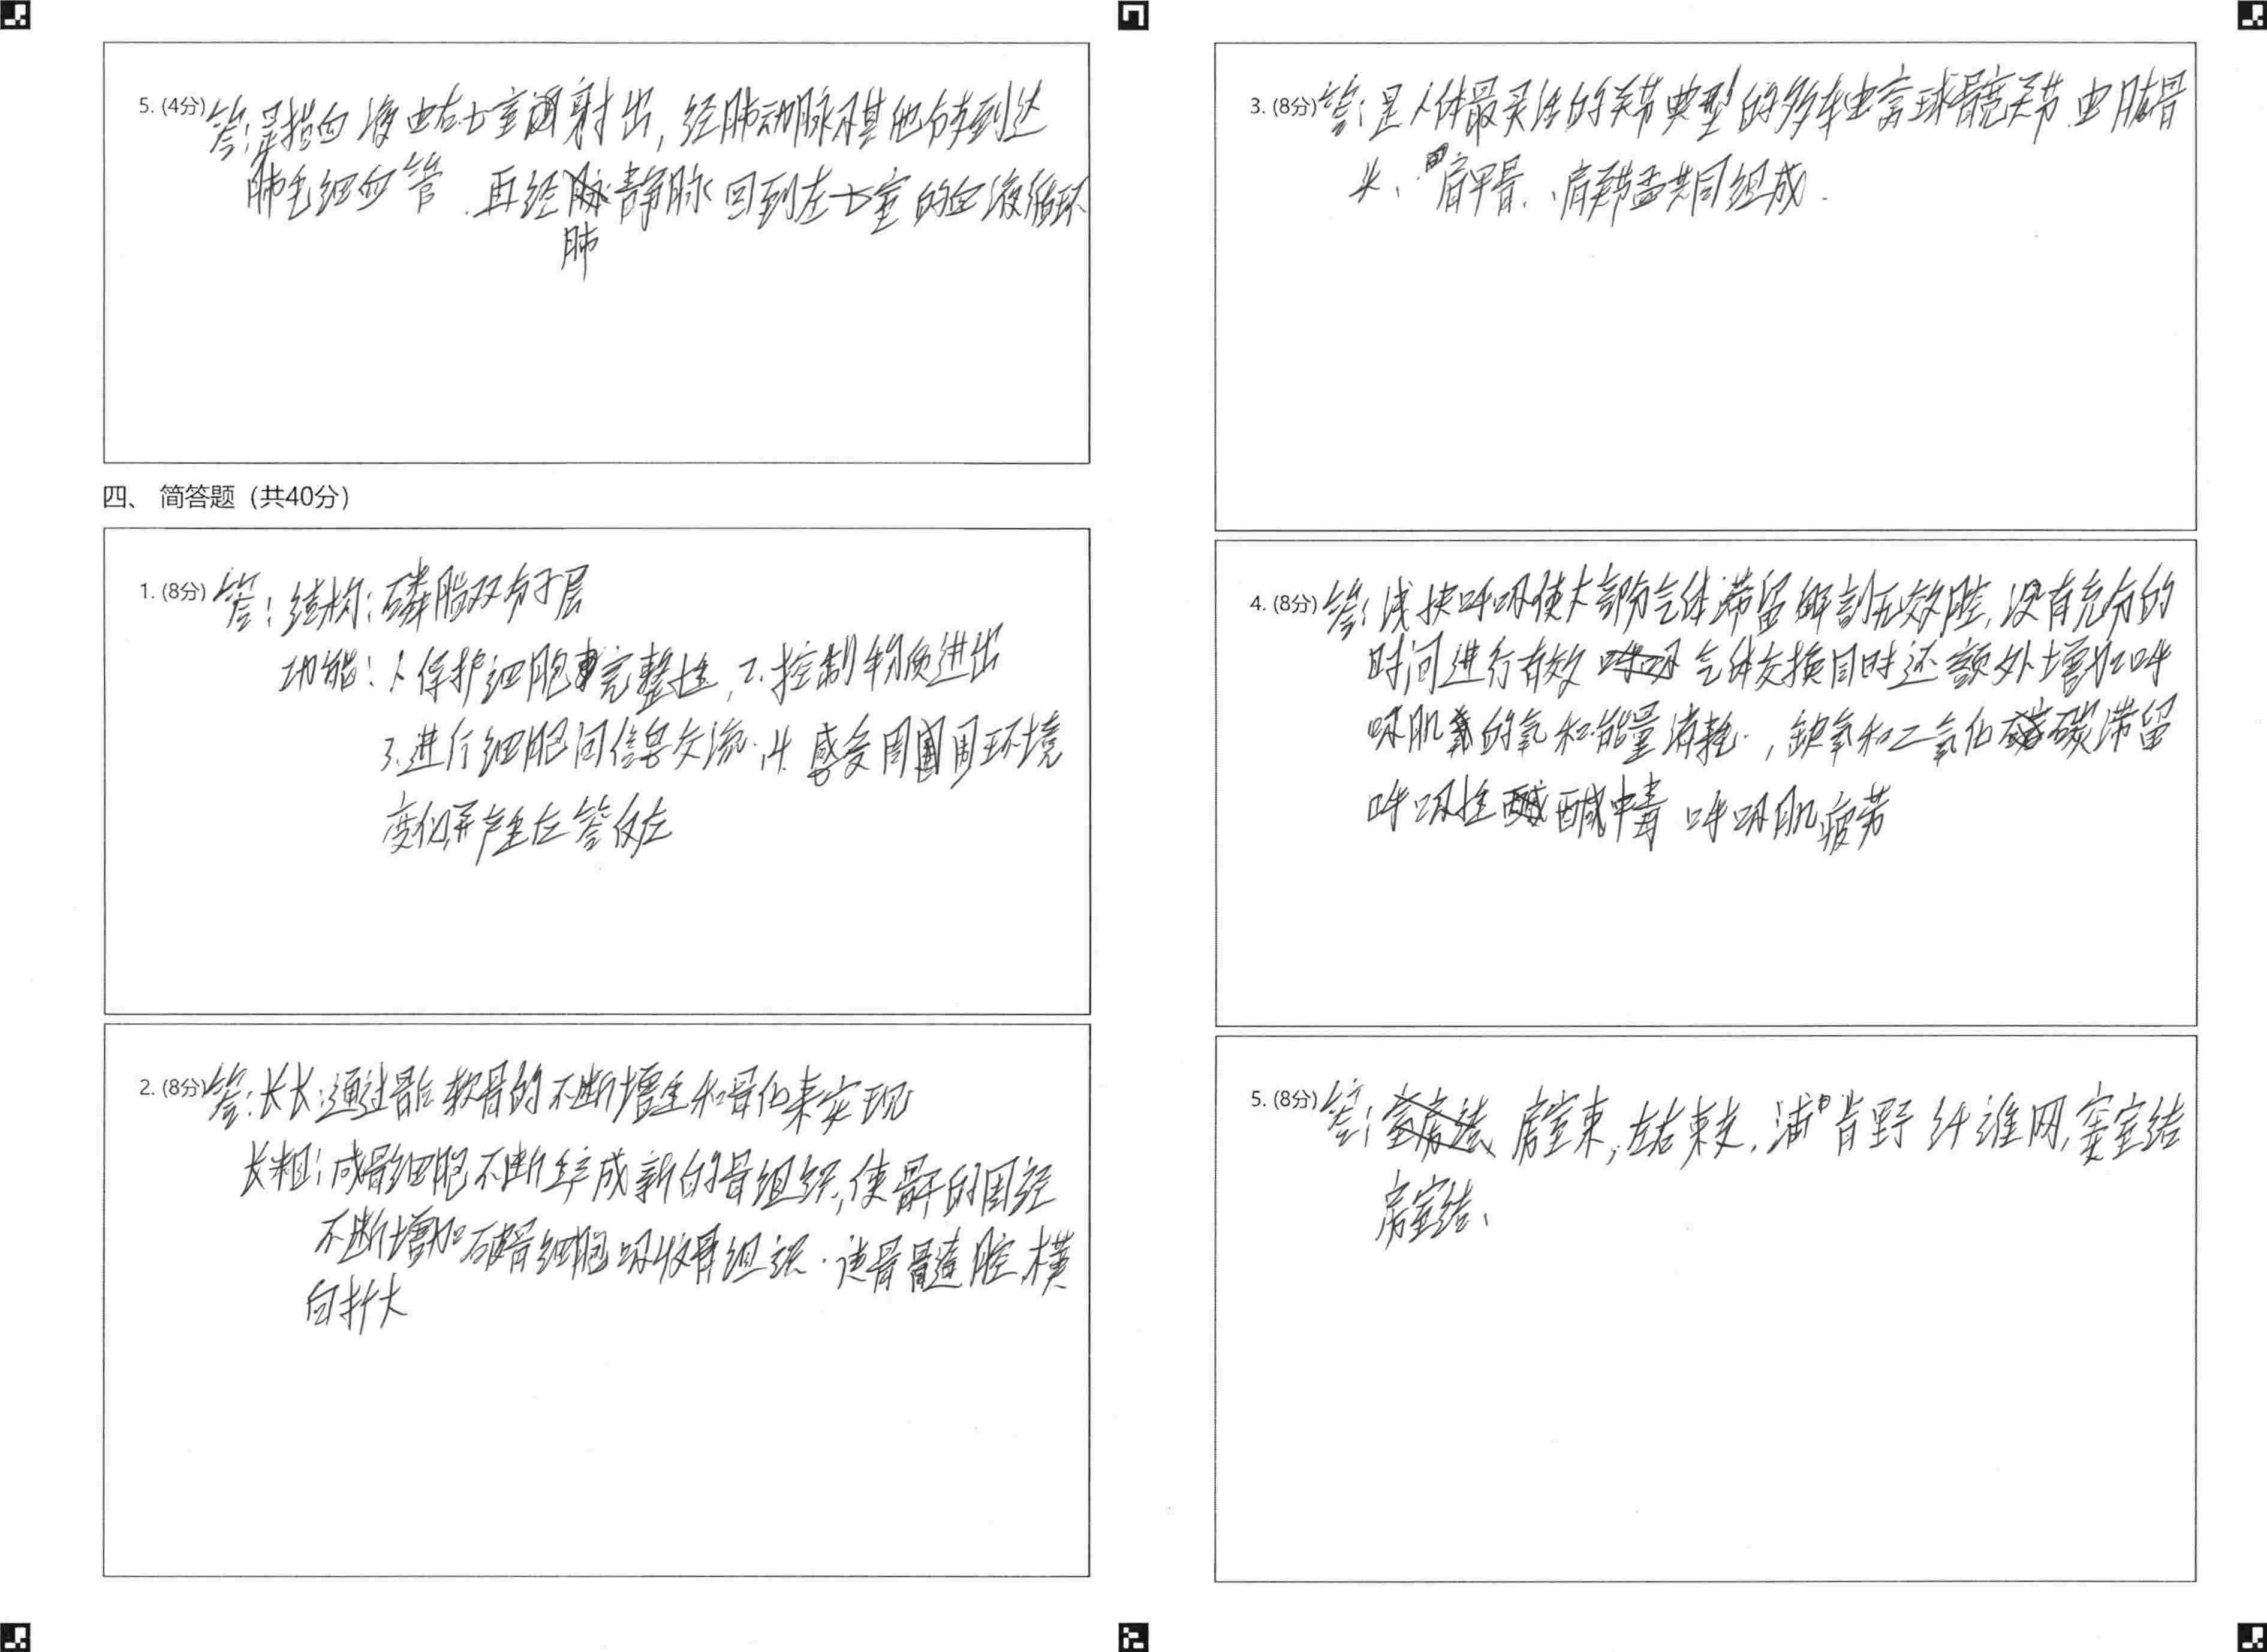 5. (4分) 答:是指血液由右心室射出,经肺动脉及其他分支到达
肺毛细血管.再经肺静脉回到左心室的血液循环
四、 简答题 (共40分)
1. (8分) 答:结构:磷脂双分子层
功能:1.保护细胞完整性,2.控制物质进出
3.进行细胞间信息交流.4.感受周围环境
变化,并产生应答反应
2. (8分) 答:长长:通过骺软骨的不断增生和骨化来实现
长粗:成骨细胞不断生成新的骨组织,使骨干的周径
不断增加.破骨细胞吸收骨组织.使骨髓腔横
向扩大
3. (8分) 答:是人体最灵活的关节典型的多轴球窝关节.由肱骨
头、肩甲骨、肩关节盂共同组成.
4. (8分) 答:浅快呼吸使大部分气体滞留解剖无效腔,没有充分的
时间进行有效气体交换同时还额外增加呼
吸肌的氧和能量消耗.,缺氧和二氧化碳滞留
呼吸性酸中毒 呼吸肌疲劳
5. (8分) 答:房室束,左右束支,浦肯野纤维网,窦室结
房室结、